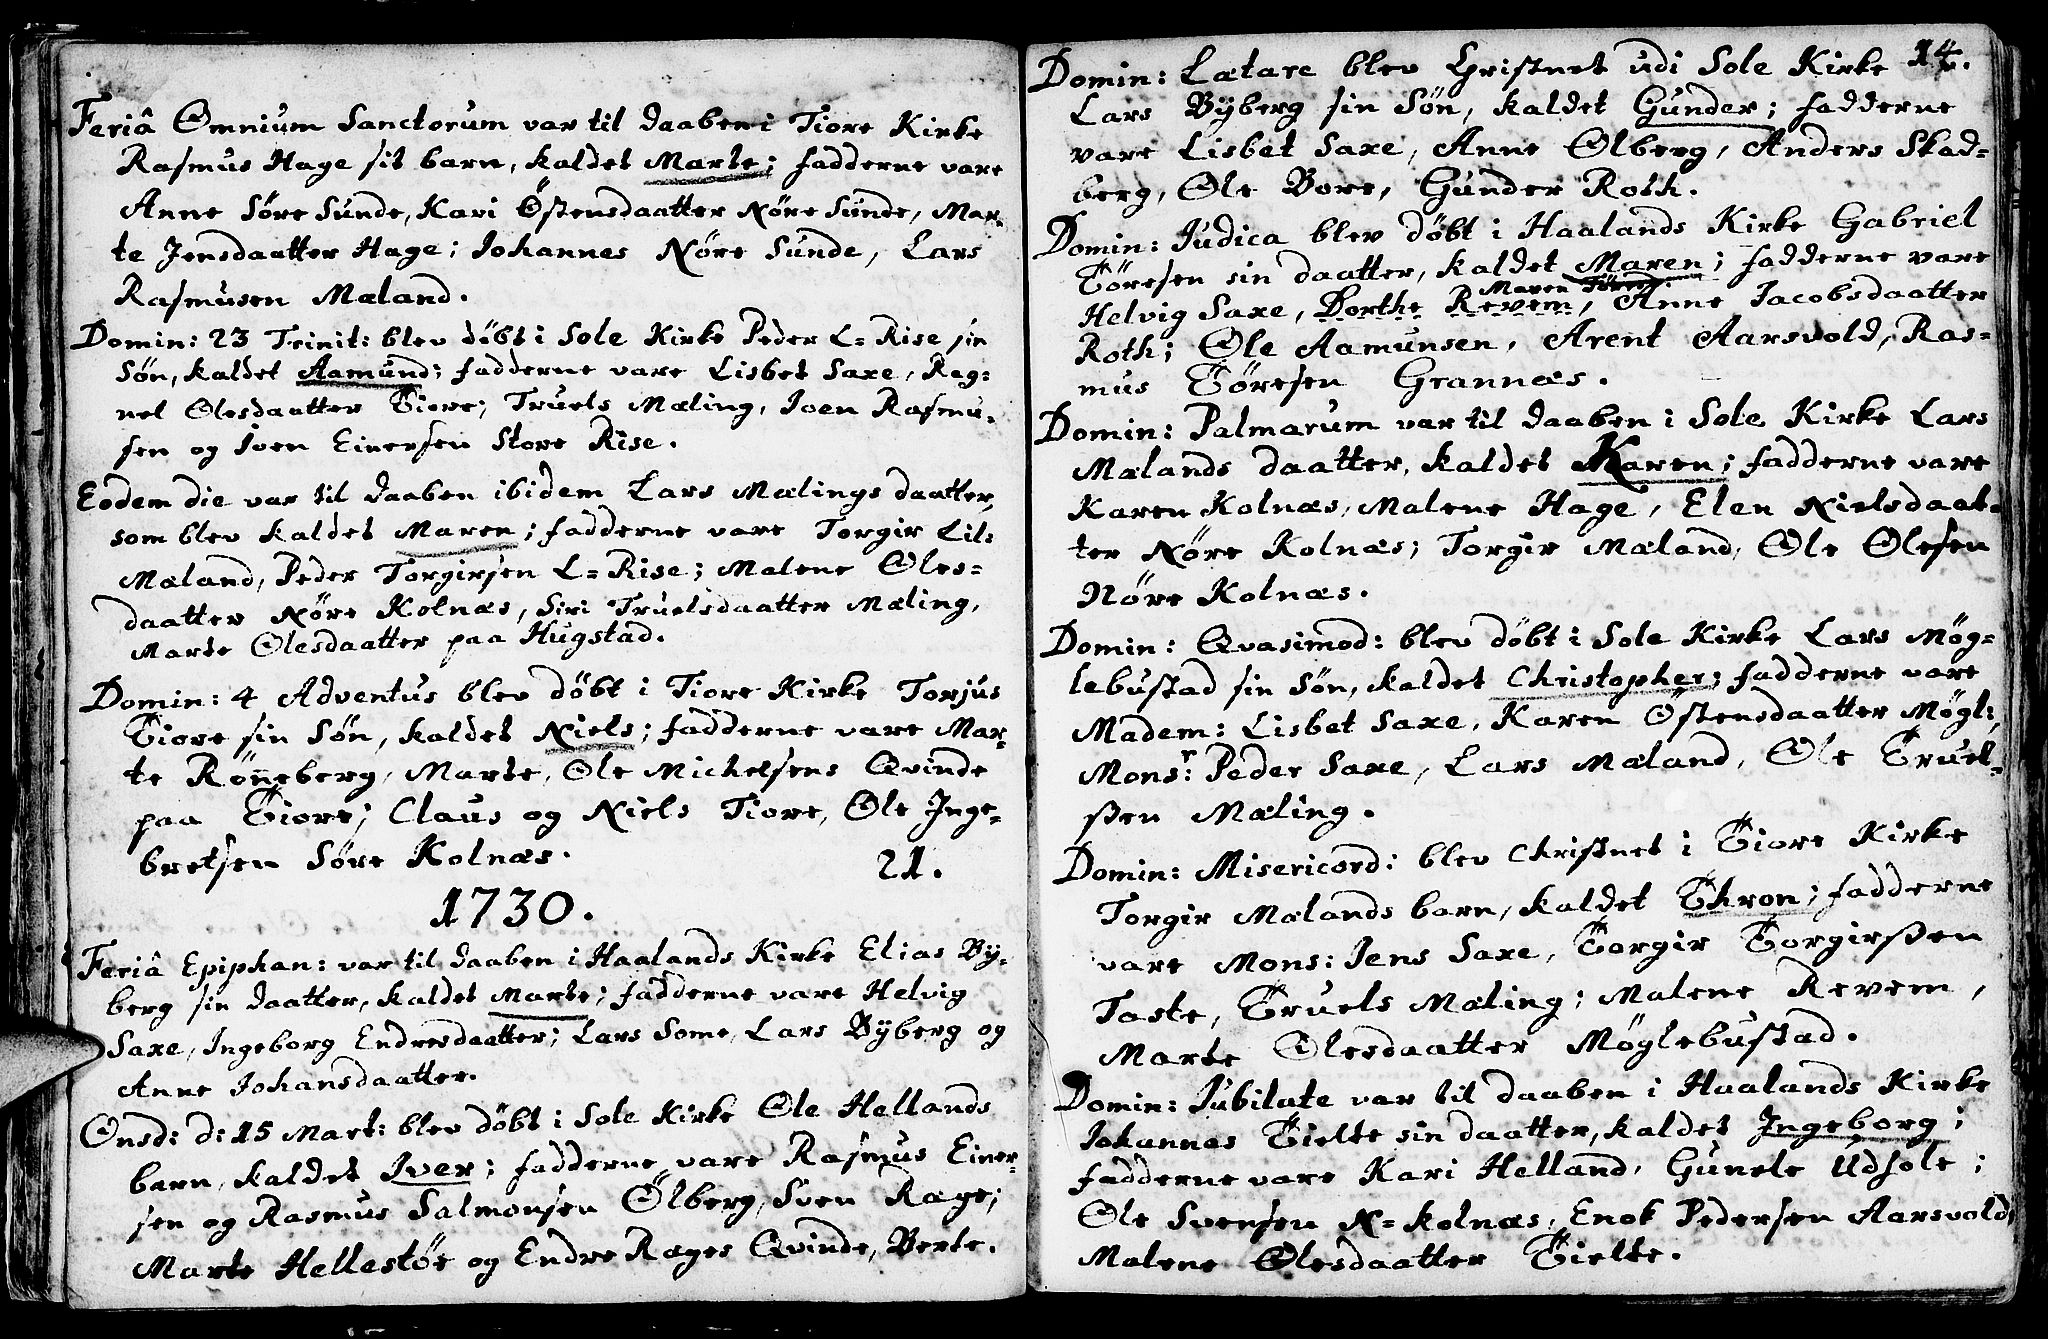 Feriâ Omnium Sanctorum var til daaben i Tiore Kirke
Rasmus Hage sit barn, kaldet Marte; fadderne vare
Anne Söre Sunde, Kari Östensdaatter Nöre Sunde, Mar-
te Jensdaatter Hage; Johannes Nöre Sunde, Lars
Rasmusen Mæland.
Domin: 23 Trinit: blev döbt i Sole Kirke Peder L= Rise sin
Sön, kaldet Aamund; fadderne vare Lisbet Saxe, Rag:
nel Olesdaatter Tiore; Truels Mæling, Joen Rasmu-
sen og Iven Einersen Store Rise.
Eodem die var til daaben ibidem Lars Mælings daatter,
som blev kaldet Maren; fadderne vare Torgir Lil:
Mæland, Peder Torgirsen L= Rise; Malene Oles=
daatter Nöre Kolnæs, Siri Truelsdaatter Mæling,
Marte Olesdaatter paa Hugstad.
Domin: 4 Adventus blev döbt i Tiore Kirke Torjus
Tiore sin Sön, kaldet Niels; fadderne vare Mar-
te Röneberg, Marte, Ole Michelsens Qvinde
paa Tiore; Claus og Niels Tiore, Ole Inge-
bretsen Söre Kolnæs.
21.
1730.
Feriâ Epiphan: var til daaben i Haalands Kirke Elias By-
berg sin daatter, kaldet Marte; fadderne vare Helvig
Saxe, Ingeborg Endresdaatter; Lars Some, Lars Byberg og
Anne Johansdaatter.
Onsd: d: 15 Mart: blev döbt i Sole Kirke Ole Hellands
barn, kaldet Iver; fadderne vare Rasmus Einer-
sen og Rasmus Salmonsen Ölberg, Sven Rage;
Marte Hellestöe og Endre Rages Qvinde, Berte.
14.
Domin: Lætare blev Christnet udi Sole Kirke
Lars Byberg sin Sön, kaldet Gunder; fadderne
vare Lisbet Saxe, Anne Ölberg, Anders Skad=
berg, Ole Bore, Gunder Roth.
Domin: Judica blev döbt i Haalands Kirke Gabriel
Töresen sin daatter, kaldet Maren; fadderne vare
Helvig Saxe, Dorthe Revem, Anne Jacobsdaatter
Roth; Ole Aamunsen, Arent Aarsvold, Ras=
mus Töresen Grannæs.
Domin: Palmarum var til daaben i Sole Kirke Lars
Mælands daatter, kaldet Karen; fadderne vare
Karen Kolnæs, Malene Hage, Elen Nielsdaat-
ter Nöre Kolnæs; Torgir Mæland, Ole Olesen
Nöre Kolnæs.
Domin: Qvasimod: blev döbt i Sole Kirke Lars Mög=
lebustad sin Sön, kaldet Christopher; fadderne vare
Madem: Lisbet Saxe, Karen Östensdaatter Mögl:,
Monsr: Peder Saxe, Lars Mæland, Ole Truel-
ssen Mæling.
Domin: Misericord: blev Christnet i Tiore Kirke
Torgir Mælands barn, kaldet Thron; fadderne
vare Mons: Jens Saxe, Torgir Torgirssen
Taste, Truels Mæling; Malene Revem,
Marte Olesdaatter Möglebustad.
Domin: Jubilate var til daaben i Haalands Kirke
Johannes Tielte sin daatter, kaldet Ingeborg;
fadderne vare Kari Helland, Gunele Udsole;
Ole Svensen N= Kolnæs, Enok Pedersen Aarsvold,
Malene Olesdaatter Tielte.